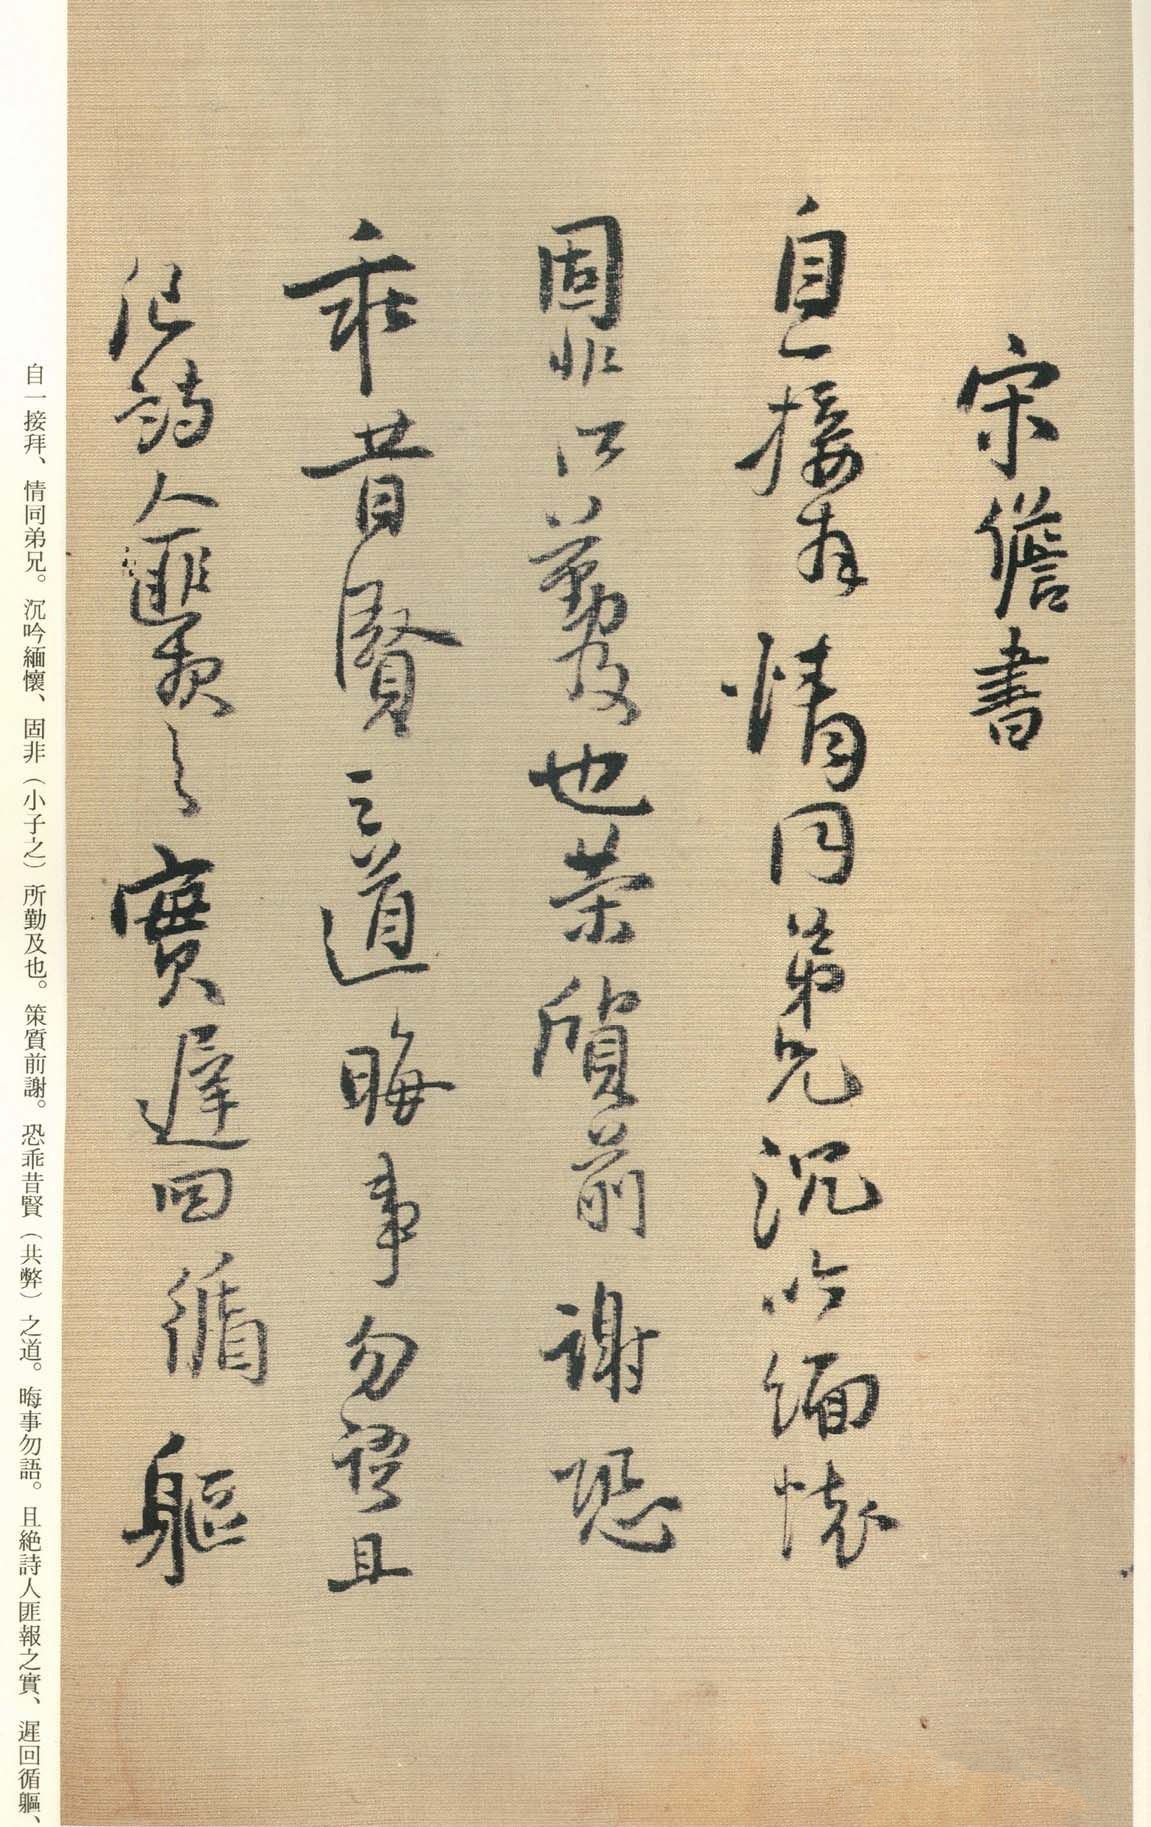 宋儋書
自一接拜情同弟兄沉吟緬懷
固非所勤及也榮質前謝恐
乖昔賢之道晦事勿語且
絕詩人匪報之實遲回循軀
自一接拜、情同弟兄。沉吟緬懷、固非（小子之）所勤及也。策質前謝。恐乖昔賢（共弊）之道。晦事勿語。且絶詩人匪報之實、遲回循軀、